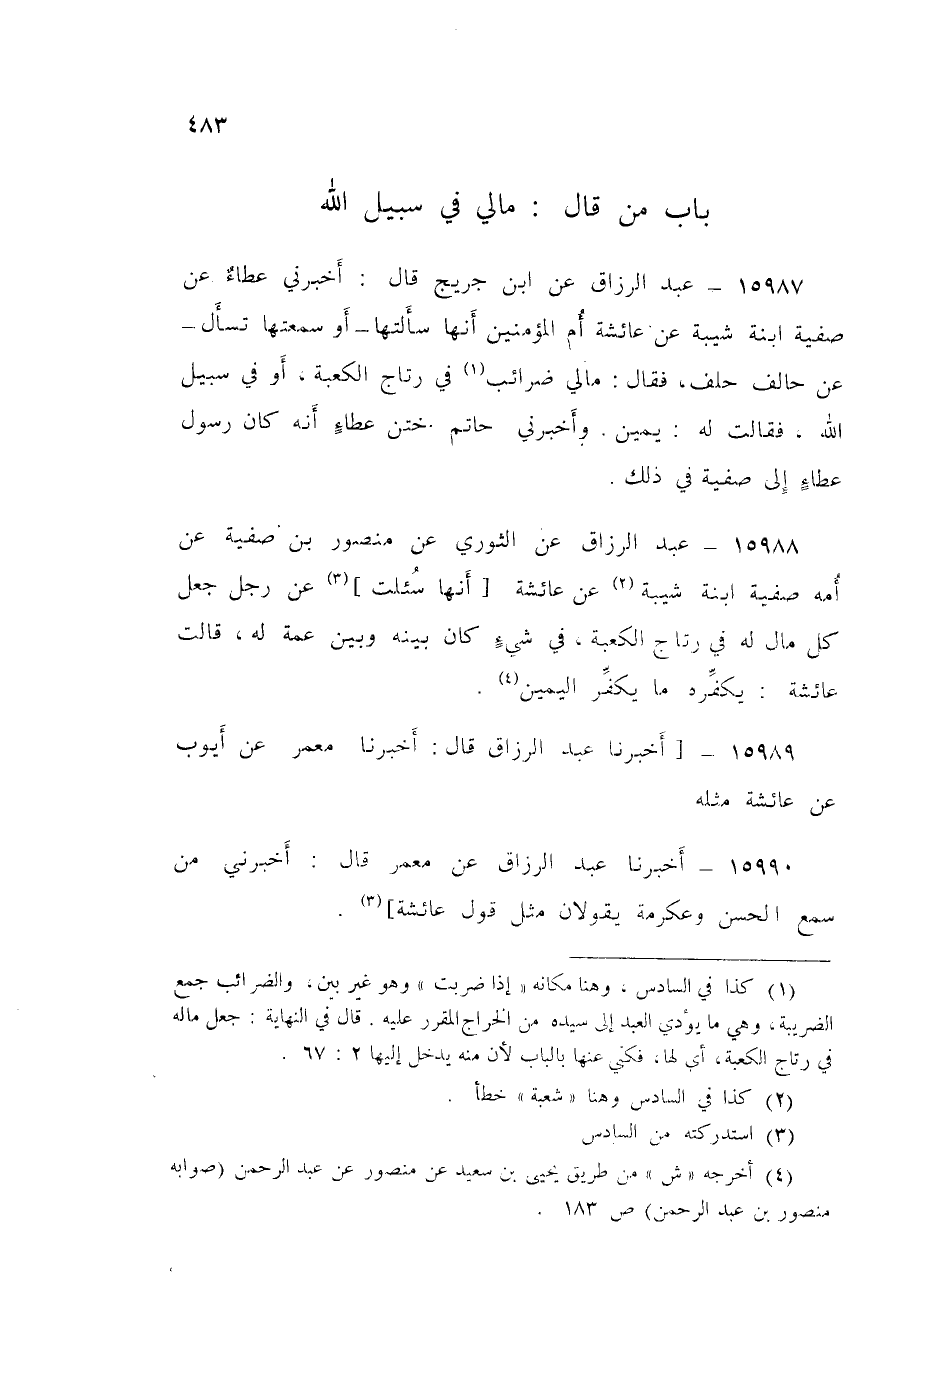 ٤٨٣
باب من قال : مالي في سبيل الله
١٥٩٨٧ – عبد الرزاق عن ابن جريج قال : أَخبرني عطاءٌ عن
صفية ابنة شيبة عن عائشة أُم المؤمنين أَنها سأَلتها – أَو سمعتها تسأَل –
عن حالف حلف ، فقال : مالي ضرائب(١) في رتاج الكعبة ، أَو في سبيل
الله ، فقالت له : يمين . وأَخبرني حاتم ختن عطاءٍ أَنه كان رسول
عطاءٍ إِلى صفية في ذلك .
١٥٩٨٨ – عبد الرزاق عن الثوري عن منصور بن صفية عن
أُمه صفية ابنة شيبة (٢) عن عائشة [ أَنها سُئلت ](٣) عن رجل جعل
كل مال له في رتاج الكعبة ، في شيءٍ كان بينه وبين عمة له ، قالت
عائشة : يكفِّره ما يكفِّر اليمين(٤) .
١٥٩٨٩ – [ أَخبرنا عبد الرزاق قال : أَخبرنا معمر عن أَيوب
عن عائشة مثله
١٥٩٩٠ – أَخبرنا عبد الرزاق عن معمر قال : أَخبرني من
سمع الحسن وعكرمة يقولان مثل قول عائشة](٣) .
(١) كذا في السادس ، وهنا مكانه « إذا ضربت » وهو غير بين ، والضرائب جمع
الضريبة ، وهي ما يؤدي العبد إلى سيده من الخراج المقرر عليه . قال في النهاية : جعل ماله
في رتاج الكعبة ، أي لها ، فكني عنها بالباب لأن منه يدخل إليها ٢ : ٦٧ .
(٢) كذا في السادس وهنا « شعبة » خطأ .
(٣) استدركته من السادس
(٤) أخرجه « ش » من طريق يحيى بن سعيد عن منصور عن عبد الرحمن (صوابه
منصور بن عبد الرحمن) ص ١٨٣ .